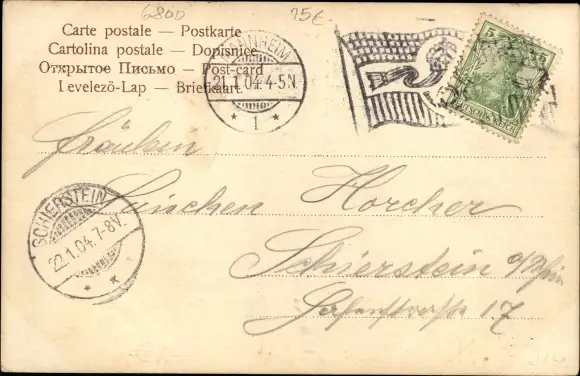 6800 15€
Carte postale — Postkarte
Cartolina postale — Dopisnice
Открытое Письмо — Post-card
Levelező-Lap — Briefkaart
MANNHEIM
21.1.04.4-5N
* 1 *
5
DEUTSCHES REICH
Fräulein
Lieschen Horcher
Schierstein a/Rhein
Hafenstraße 17
SCHIERSTEIN
22.1.04.7-8V.